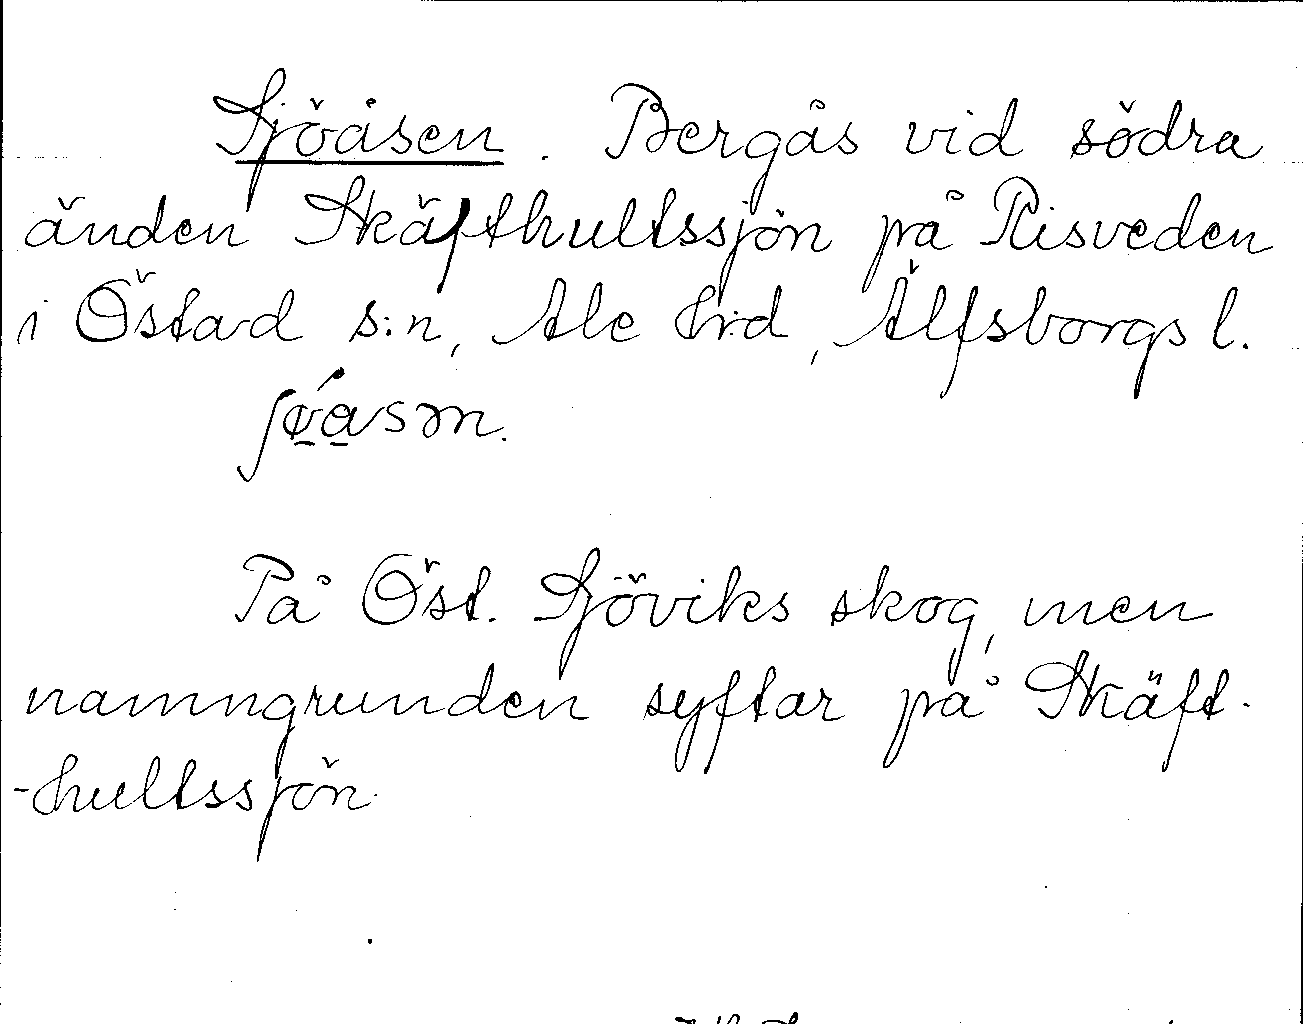 Sjöåsen. Bergås vid södra
änden Skäfthultssjön på Risveden
i Östad s:n, Ale h:d, Älfsborgs l.
ʃǿ̲a̲sən.
På Öst. Sjöviks skog, men
namngrunden syftar på Skäft-
-hultssjön.